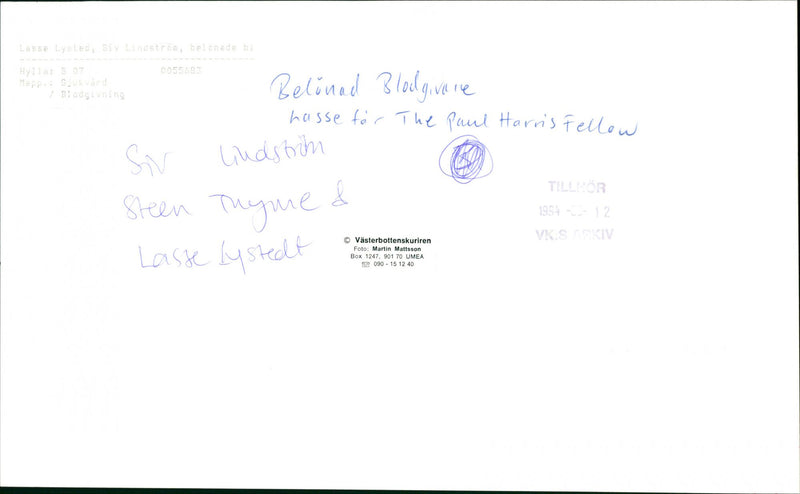 Lasse Lysted, Siv Lindström, belönade bl
Hylla: B 07 0055683
Mapp.: Sjukvård
/ Blodgivning
Belönad Blodgivare
Lasse får The Paul Harris Fellow
Siv Lindström
Steen Thyme &
Lasse Lystedt
© Västerbottenskuriren
Foto: Martin Mattsson
Box 1247, 901 70 UMEA
☏ 090 - 15 12 40
TILLHÖR
1994 12
VK:S ARKIV